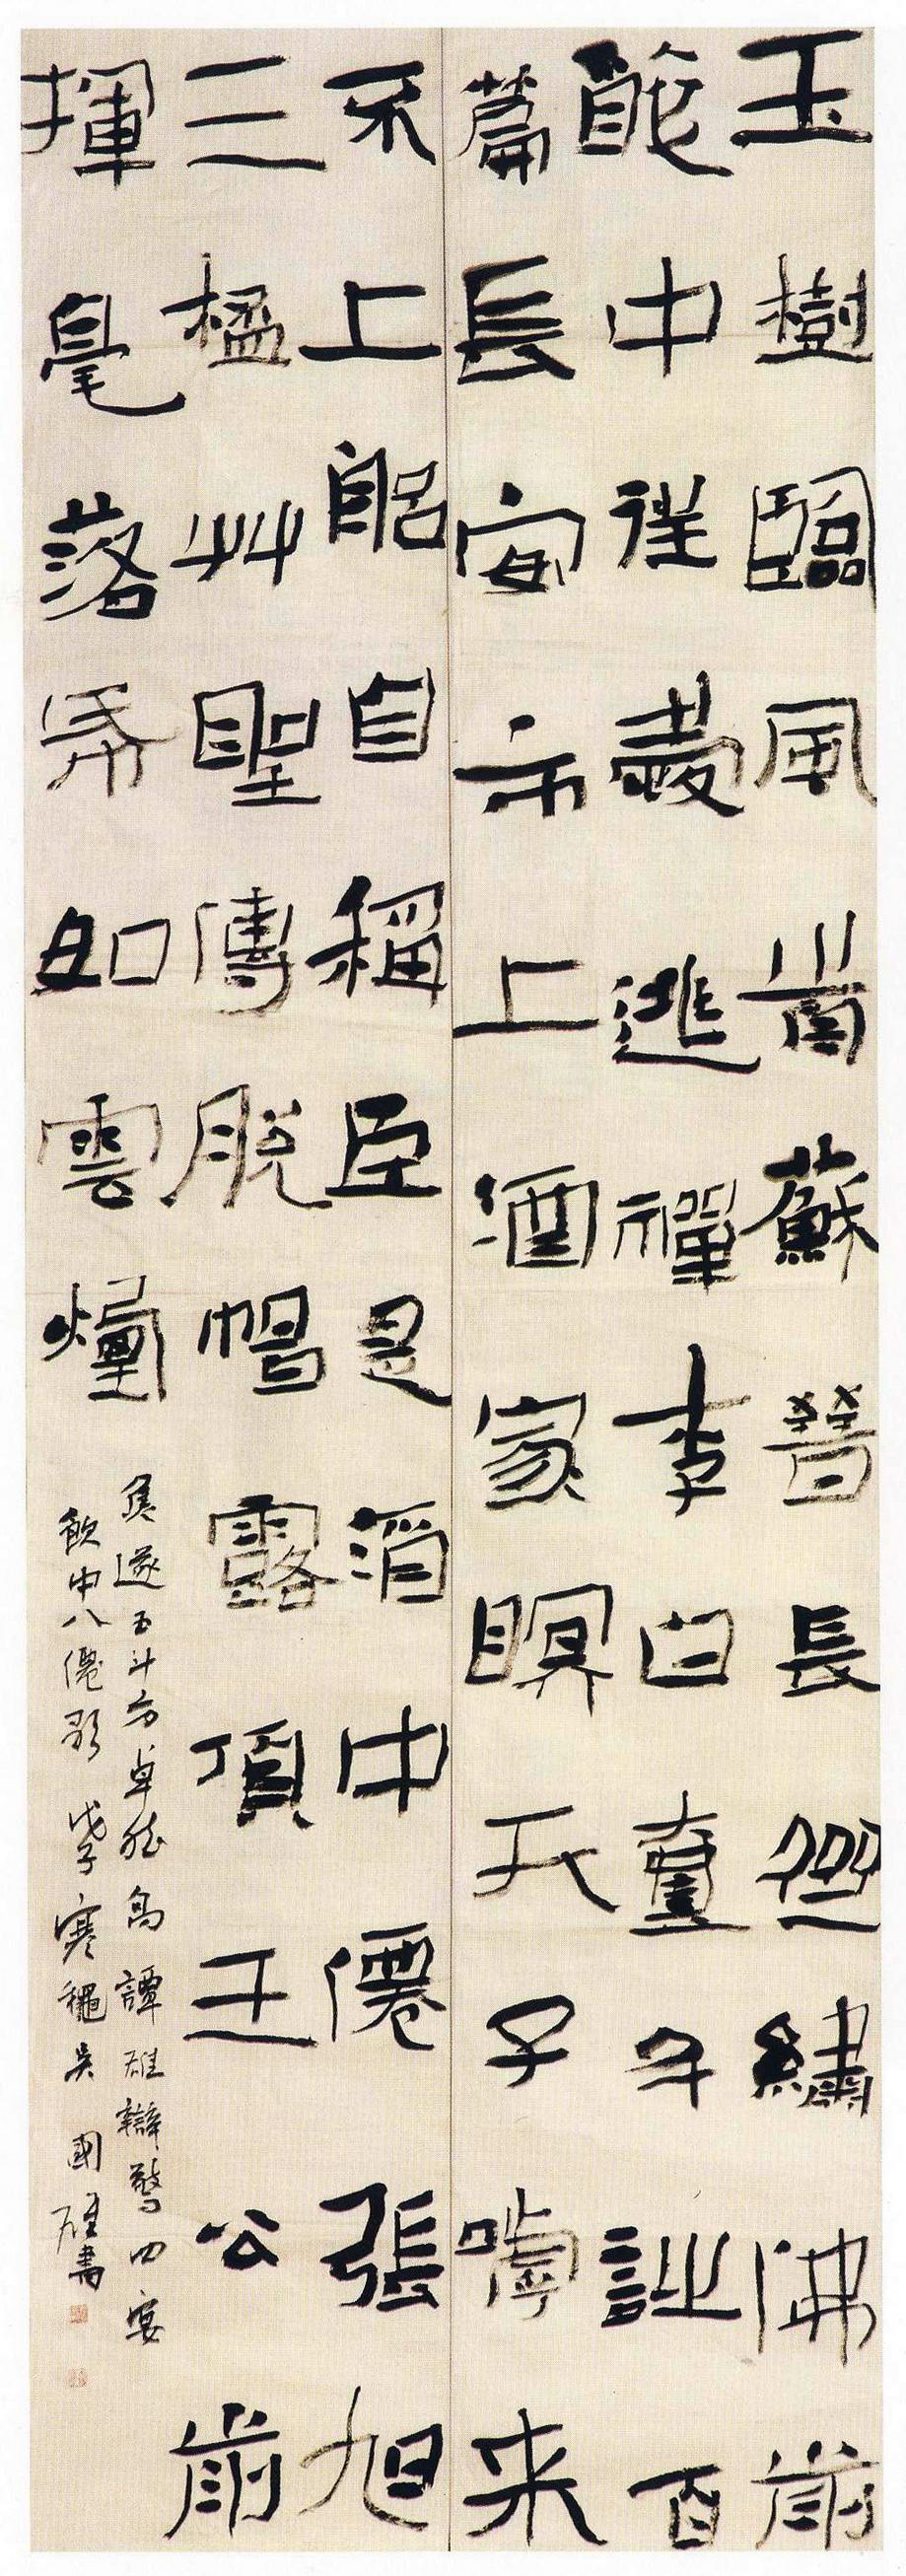 玉樹臨風前蘇晉長齋繡佛前
醉中往愛逃禪李白壹斗詩百
篇長安市上酒家眠天子嘑来
不上船自稱臣是酒中僊張旭
三桮艸聖傳脫帽露頂王公前
揮毫落帋如雲煙
焦遂五斗方卓然高譚雄辯驚四宴
飲中八僊歌 戊子寒龝吴國雄書